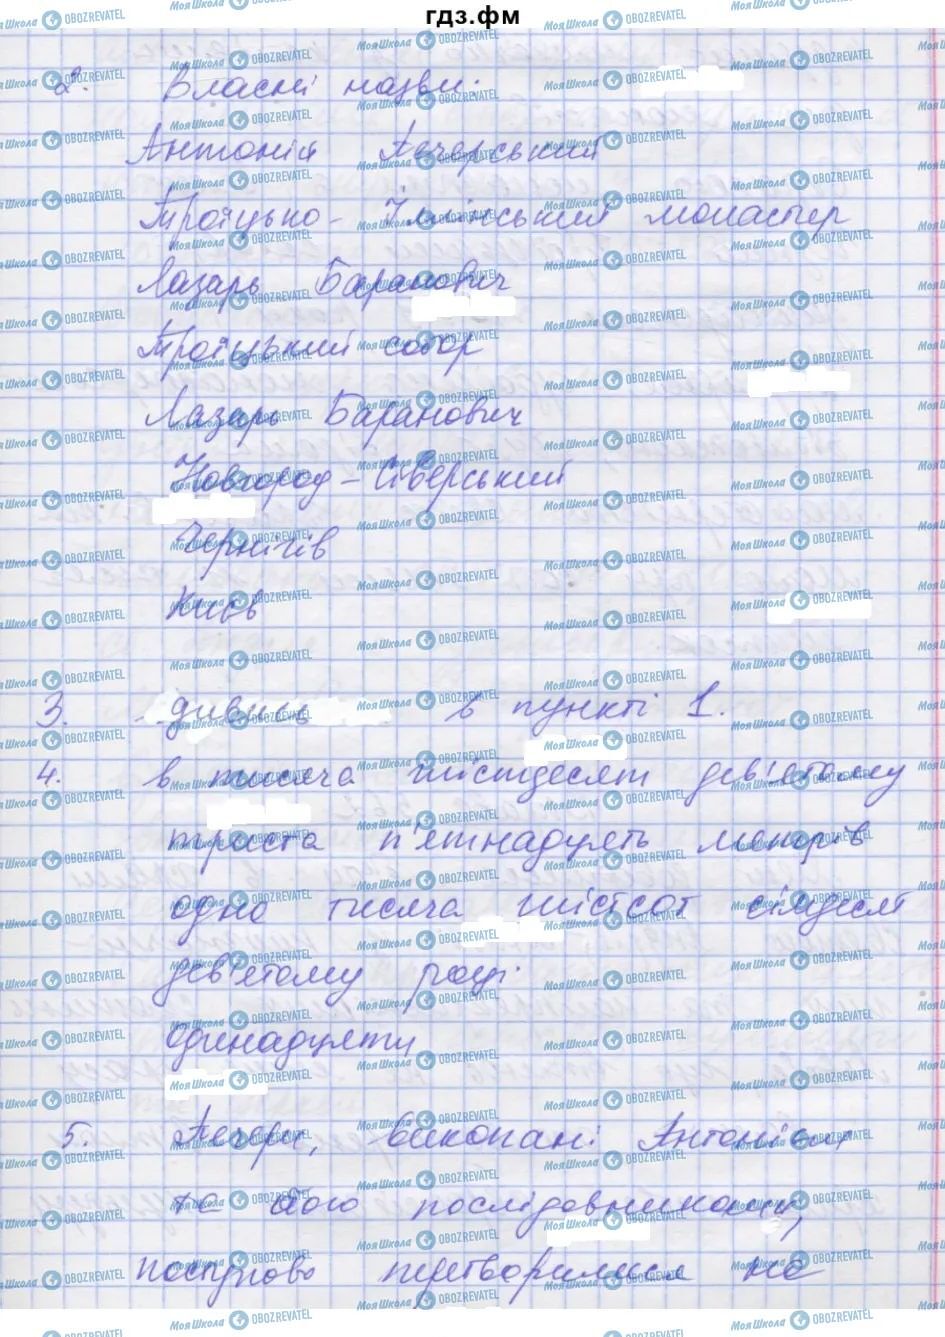 гдз.фм
2. Власні назви.
Антоній Печерський
Троїцько-Іллінський монастир
Лазарь Баранович
Троїцький собор
Лазарь Баранович
Новгород-Сіверський
Чернігів
Київ
3. дивись в пункті 1.
4. в тисяча шістдесят дев'ятому
триста п'ятнадцять метрів
одна тисяча шістсот сімдесят
дев'ятому році
одинадцяти
5. Печери, викопані Антонієм
та його послідовниками,
поступово перетворилися на